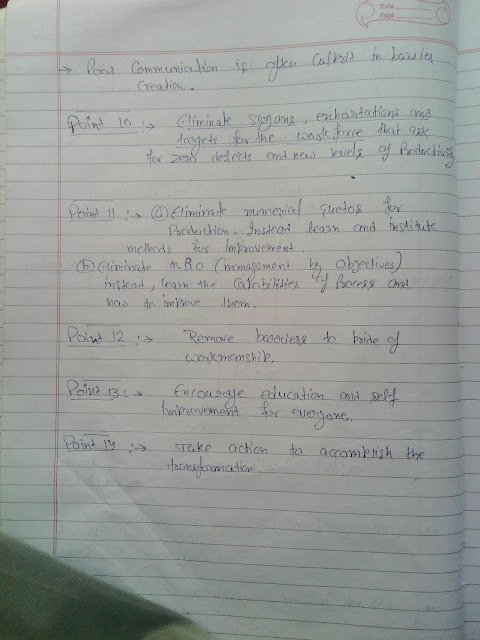 Date
Page
→ Poor Communication is often Culprit in barrier
Creation.
Point 10 :→ Eliminate Slogans, enhortations and
targets for the workforce that ask
for zero defects and new levels of Productivity
Point 11 :→ (a) Eliminate numerical quotas for
Production. Instead learn and institute
methods for improvement.
(b) Eliminate M.B.O (management by Objectives)
instead, learn the Capabilities of Process and
how to improve them.
Point 12 :→ Remove barriers to pride of
workmanship.
Point 13 :→ Encourage education and self
Improvement for everyone.
Point 14 :→ Take action to accomplish the
transformation.